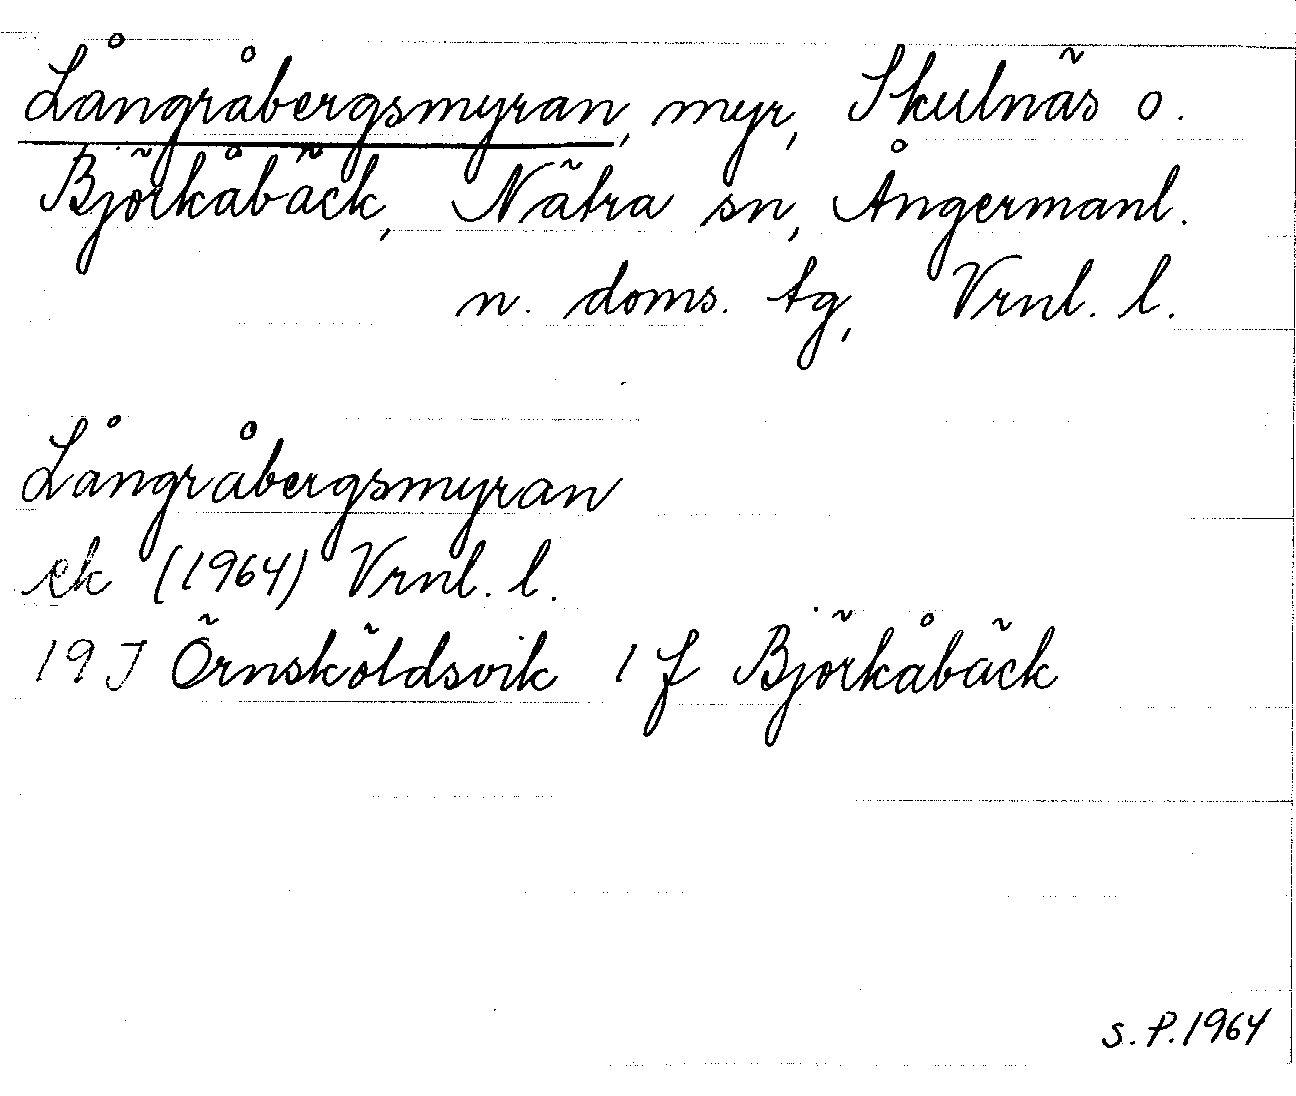 Långråbergsmyran, myr, Skulnäs o.
Björkåbäck, Nätra sn, Ångermanl.
n. doms. tg, Vrnl. l.
Långråbergsmyran
ek (1964) Vrnl. l.
19 J Örnsköldsvik 1 f Björkåbäck
S. P. 1964